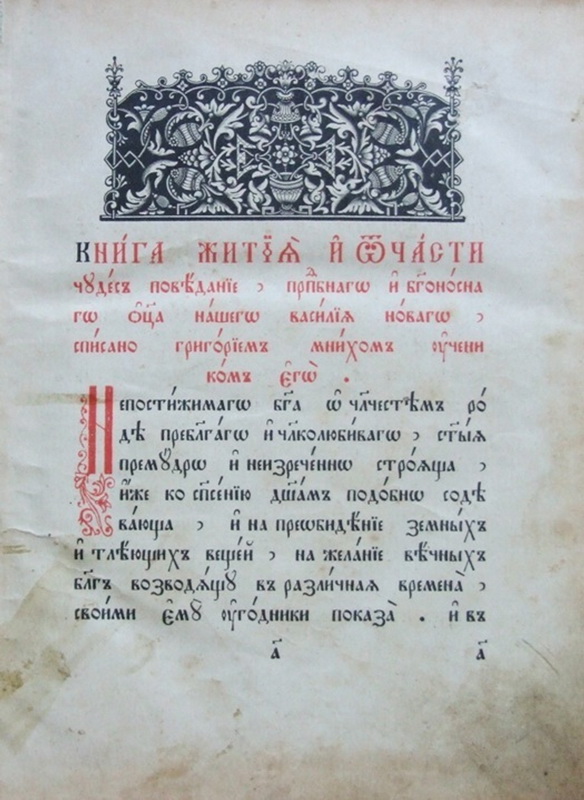 Кни́га житїѧ̀ и҆ ѿча́сти
чꙋде́съ повѣ́данїе , прпⷣбнагѡ и҆ бг҃оно́сна
гѡ ѻ҆ц҃а̀ на́шегѡ васи́лїѧ но́вагѡ ,
спи́сано григо́рїемъ мни́хомъ ᲂу҆чени
ко́мъ є҆гѡ̀ .
Непости́жимагѡ бг҃а ѡ҆ чл҃честѣ́мъ ро́
дѣ пребл҃га́гѡ и҆ чл҃колюби́вагѡ , ст҃ы́ѧ
прему́дрѡ и҆ неизрече́ннѡ строѧ́ща ,
и҆́же ко сп҃се́нїю дш҃а́мъ подо́бнѡ содѣ
ва́юща , и҆ на преѡби́дѣнїе земны́хъ
и҆ тлѣ́ющихъ веще́й , на жела́нїе вѣ́чныхъ
бл҃гъ возводѧ́щꙋ въ разли́чнаѧ времена̀ ,
свои́ми є҆мꙋ̀ ᲂу҆го́дники показа̀ . и҆ въ
а҃ а҃